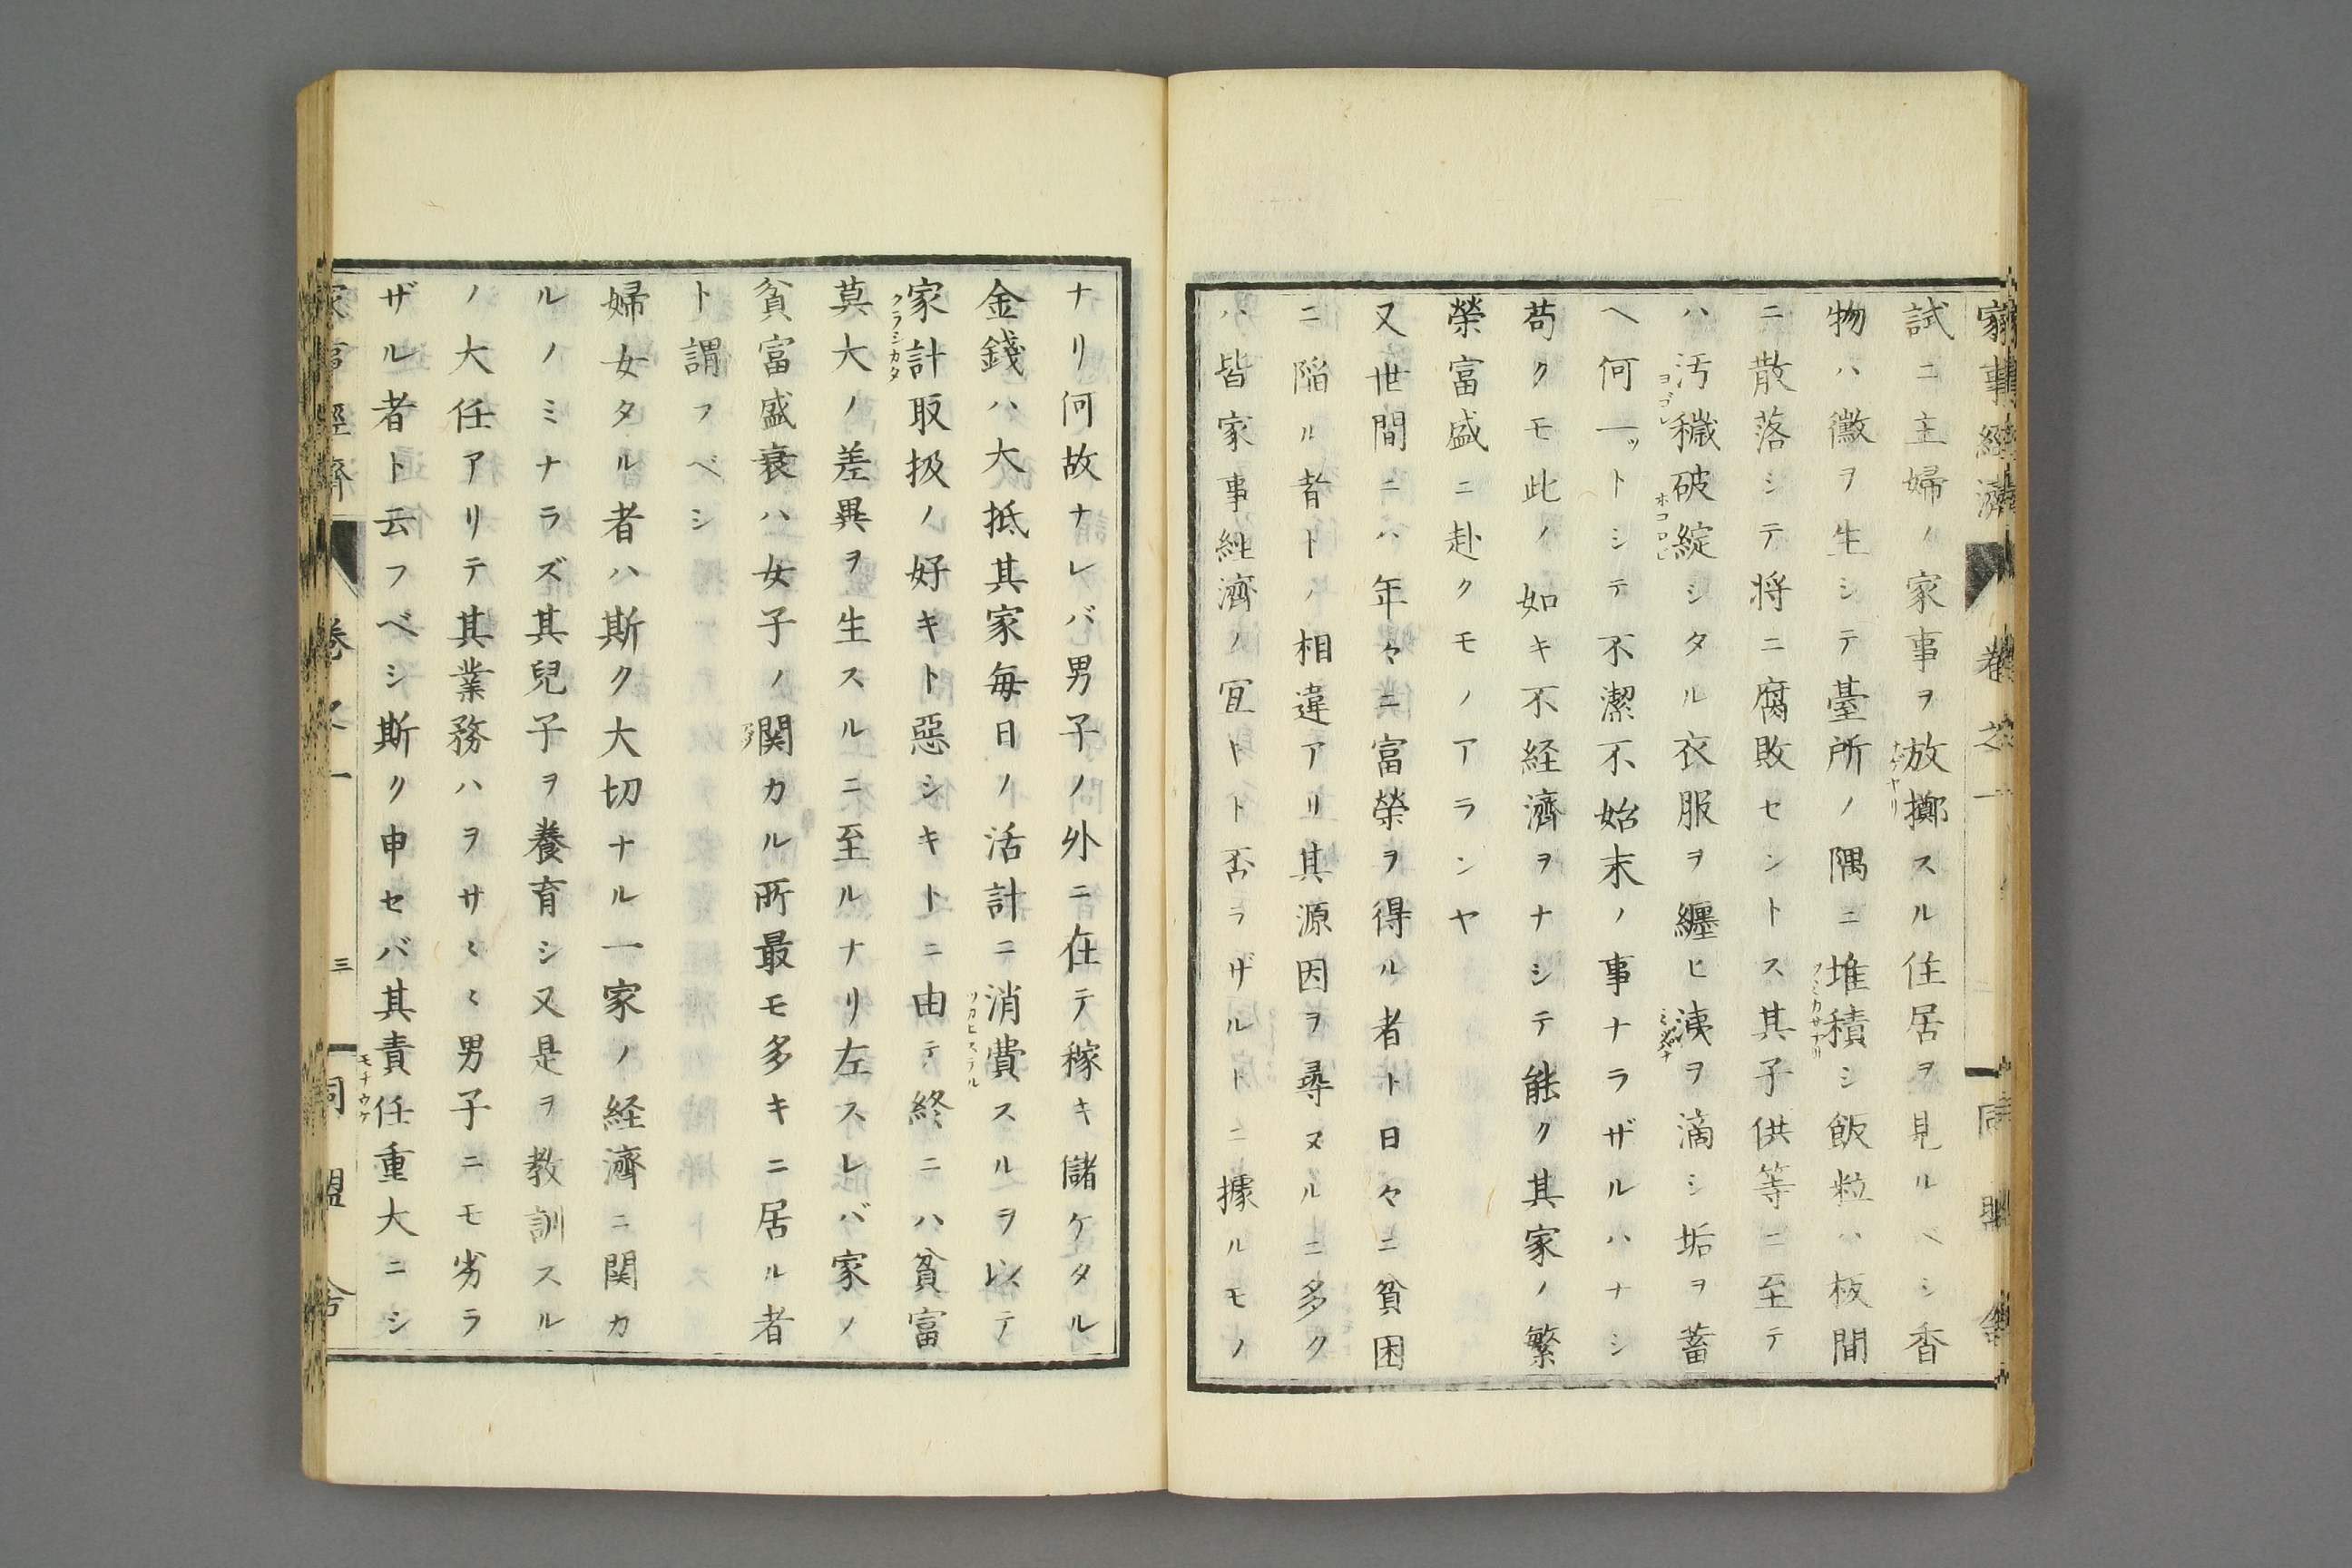 家事経濟 卷之一 同盟舎
試ニ主婦ノ家事ヲ放擲スル住居ヲ見ルベシ香
物ハ黴ヲ生シテ臺所ノ隅ニ堆積シ飯粒ハ板間
ニ散落シテ将ニ腐敗セントス其子供等ニ至テ
ハ汚穢破綻シタル衣服ヲ纒ヒ洟ヲ滴シ垢ヲ蓄
ヘ何一ットシテ不潔不始末ノ事ナラザルハナシ
苟クモ此ノ如キ不経濟ヲナシテ能ク其家ノ繁
榮富盛ニ赴クモノアランヤ
又世間ニハ年々ニ富榮ヲ得ル者ト日々ニ貧困
ニ陥ル者トノ相違アリ其源因ヲ尋ヌルニ多ク
ハ皆家事経濟ノ冝ト否ラザルトニ據ルモノ
ナリ何故ナレバ男子ノ外ニ在テ稼キ儲ケタル
金錢ハ大抵其家毎日ノ活計ニ消費スルヲ以テ
家計取扱ノ好キト惡シキトニ由テ終ニハ貧富
莫大ノ差異ヲ生スルニ至ルナリ左スレバ家ノ
貧富盛衰ハ女子ノ関カル所最モ多キニ居ル者
ト謂フベシ
婦女タル者ハ斯ク大切ナル一家ノ経濟ニ関カ
ルノミナラズ其兒子ヲ養育シ又是ヲ教訓スル
ノ大任アリテ其業務ハヲサ〱〱男子ニモ劣ラ
ザル者ト云フベシ斯ク申セバ其責任重大ニシ
家事經濟 卷之一 三 同盟舎